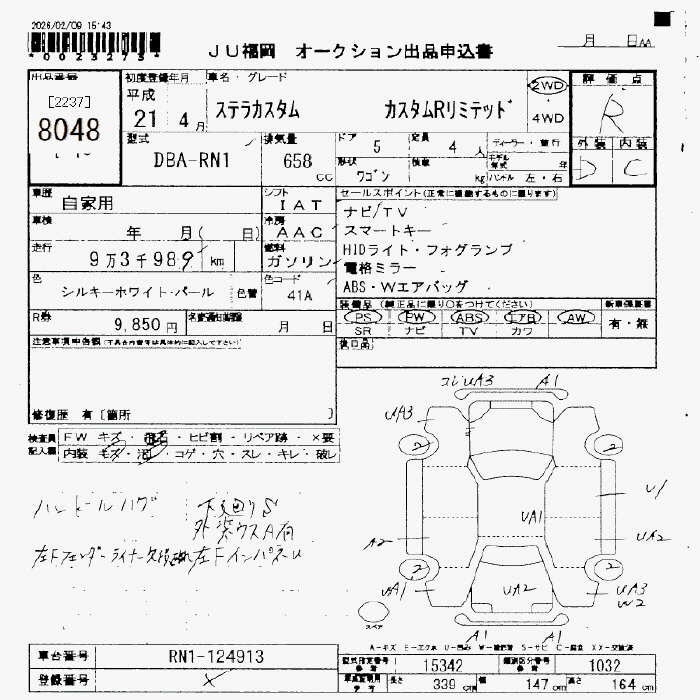 2026/02/09 15:43
*00232753*
JU福岡 オークション出品申込書
月 日 AA
出品番号
[2237]
8048
初度登録年月
平成
21 4月
車名・グレード
ステラカスタム カスタムRリミテッド
2WD
4WD
評価点
R
外装 内装
D C
型式
DBA-RN1
排気量
658
cc
ドア 5
定員 4 人
形状 ワゴン
積載 kg
ディーラー・並行
モデル年式 年
ハンドル 左・右
車歴 自家用
シフト IAT
車検 年 月( 日)
冷房 AAC
走行 9万3千989 km
燃料 ガソリン
色 シルキーホワイト・パール 色替
色コード 41A
R券 9,850円
名変期日
月 日
セールスポイント(正常に機能するものに限ります)
ナビ/TV
スマートキー
HIDライト・フォグランプ
電格ミラー
ABS・Wエアバッグ
装備品 (純正品に限り○をつけてください)
PS PW ABS エアB AW
SR ナビ TV カワ
新車保証書
有・無
後日品
注意事項申告欄
修復歴 有〔箇所 〕
検査員記入欄
FW キズ・飛石・ヒビ割・リペア跡・×要
内装 キズ・汚・コゲ・穴・スレ・キレ・破レ
ハンドルハゲ
下廻りS
外装ウスA有
左Fフェンダーライナー欠損
左FインパネU
コジUA3 A1
UA3
2 2
U1
UA1
A2 UA2
2 2
UA1 UA2 UA3
W2
スペア
A1 A1
A-キズ E-エクボ U-凹み W-補修跡 S-サビ C-腐食 XX-交換済
車台番号 RN1-124913
登録番号
型式指定番号 15342
類別区分番号 1032
長さ 339 cm
幅 147 cm
高さ 164 cm